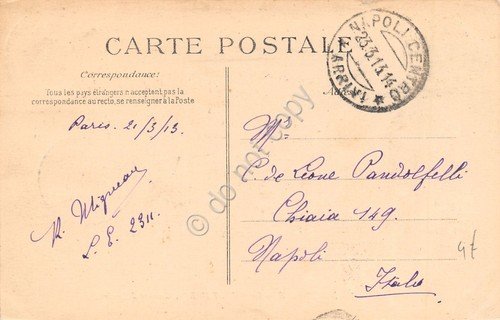 CARTE POSTALE
Correspondance:
Tous les pays étrangers n'acceptent pas la
correspondance au recto, se renseigner à la Poste
NAPOLI CENTRO
23.3.13.14
ARRIVI
Paris. 21/3/13.
L. E. 2311.
Mr
C. de Leone Pandolfelli
Chiaia 149.
Napoli
Italie
47
do not copy